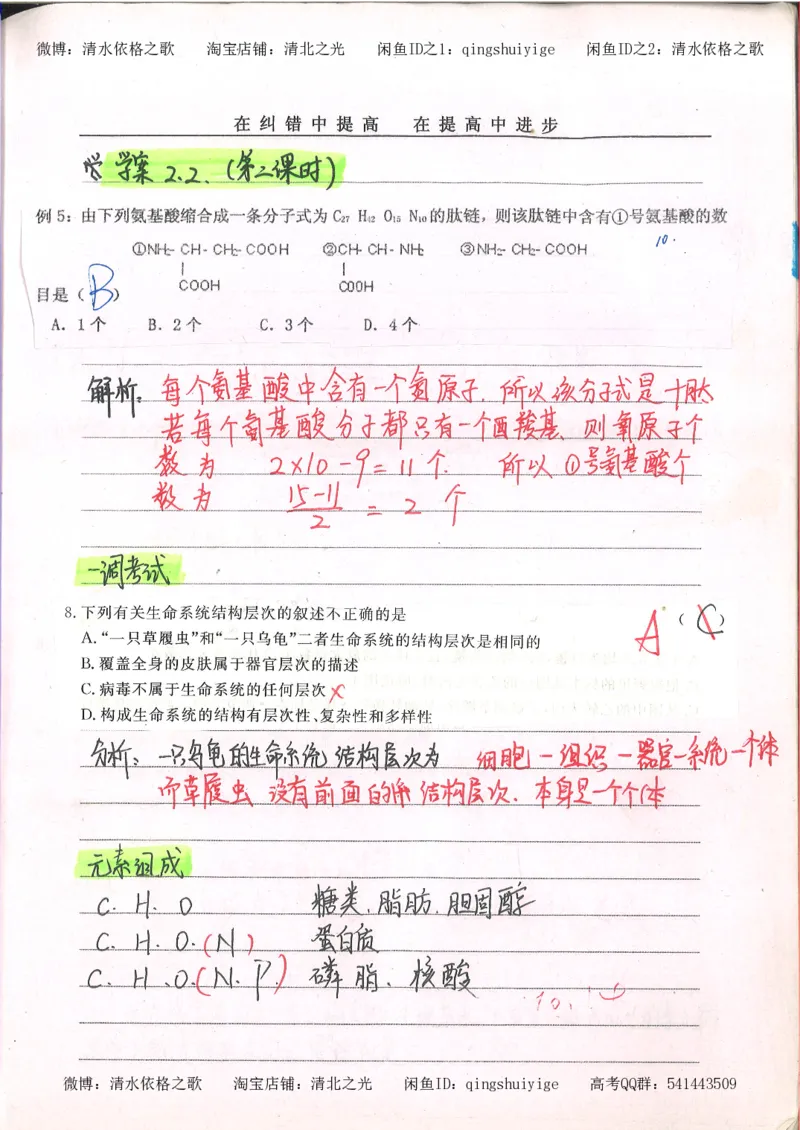 微博：清水依格之歌 淘宝店铺：清北之光 闲鱼ID之1：qingshuiyige 闲鱼ID之2：清水依格之歌
在纠错中提高 在提高中进步
学案 2.2.（第二课时）
例 5：由下列氨基酸缩合成一条分子式为 C27 H42 O15 N10 的肽链，则该肽链中含有①号氨基酸的数
10.
①NH2－CH－CH2－COOH ②CH－CH－NH2 ③NH2－CH2－COOH
COOH COOH
目是（B）
A．1个 B．2个 C．3个 D．4个
解析：每个氨基酸中含有一个氮原子，所以该分子式是十肽
若每个氨基酸分子都只有一个酉羧基、则氧原子个
数为 2×10－9=11个. 所以①号氨基酸个
数为 15-11/2 = 2 个
一调考试
8. 下列有关生命系统结构层次的叙述不正确的是 A（C）
A.“一只草履虫”和“一只乌龟”二者生命系统的结构层次是相同的
B. 覆盖全身的皮肤属于器官层次的描述
C. 病毒不属于生命系统的任何层次 ×
D. 构成生命系统的结构有层次性、复杂性和多样性
分析：一只乌龟的生命系统结构层次为 细胞－组织－器官－系统－个体
而草履虫没有前面的 结构层次．本身是一个个体
元素组成
C. H. O 糖类．脂肪．胆固醇
C. H. O.(N) 蛋白质
C. H .O.(N. P.) 磷脂、核酸
10.
微博：清水依格之歌 淘宝店铺：清北之光 闲鱼ID：qingshuiyige 高考QQ群：541443509